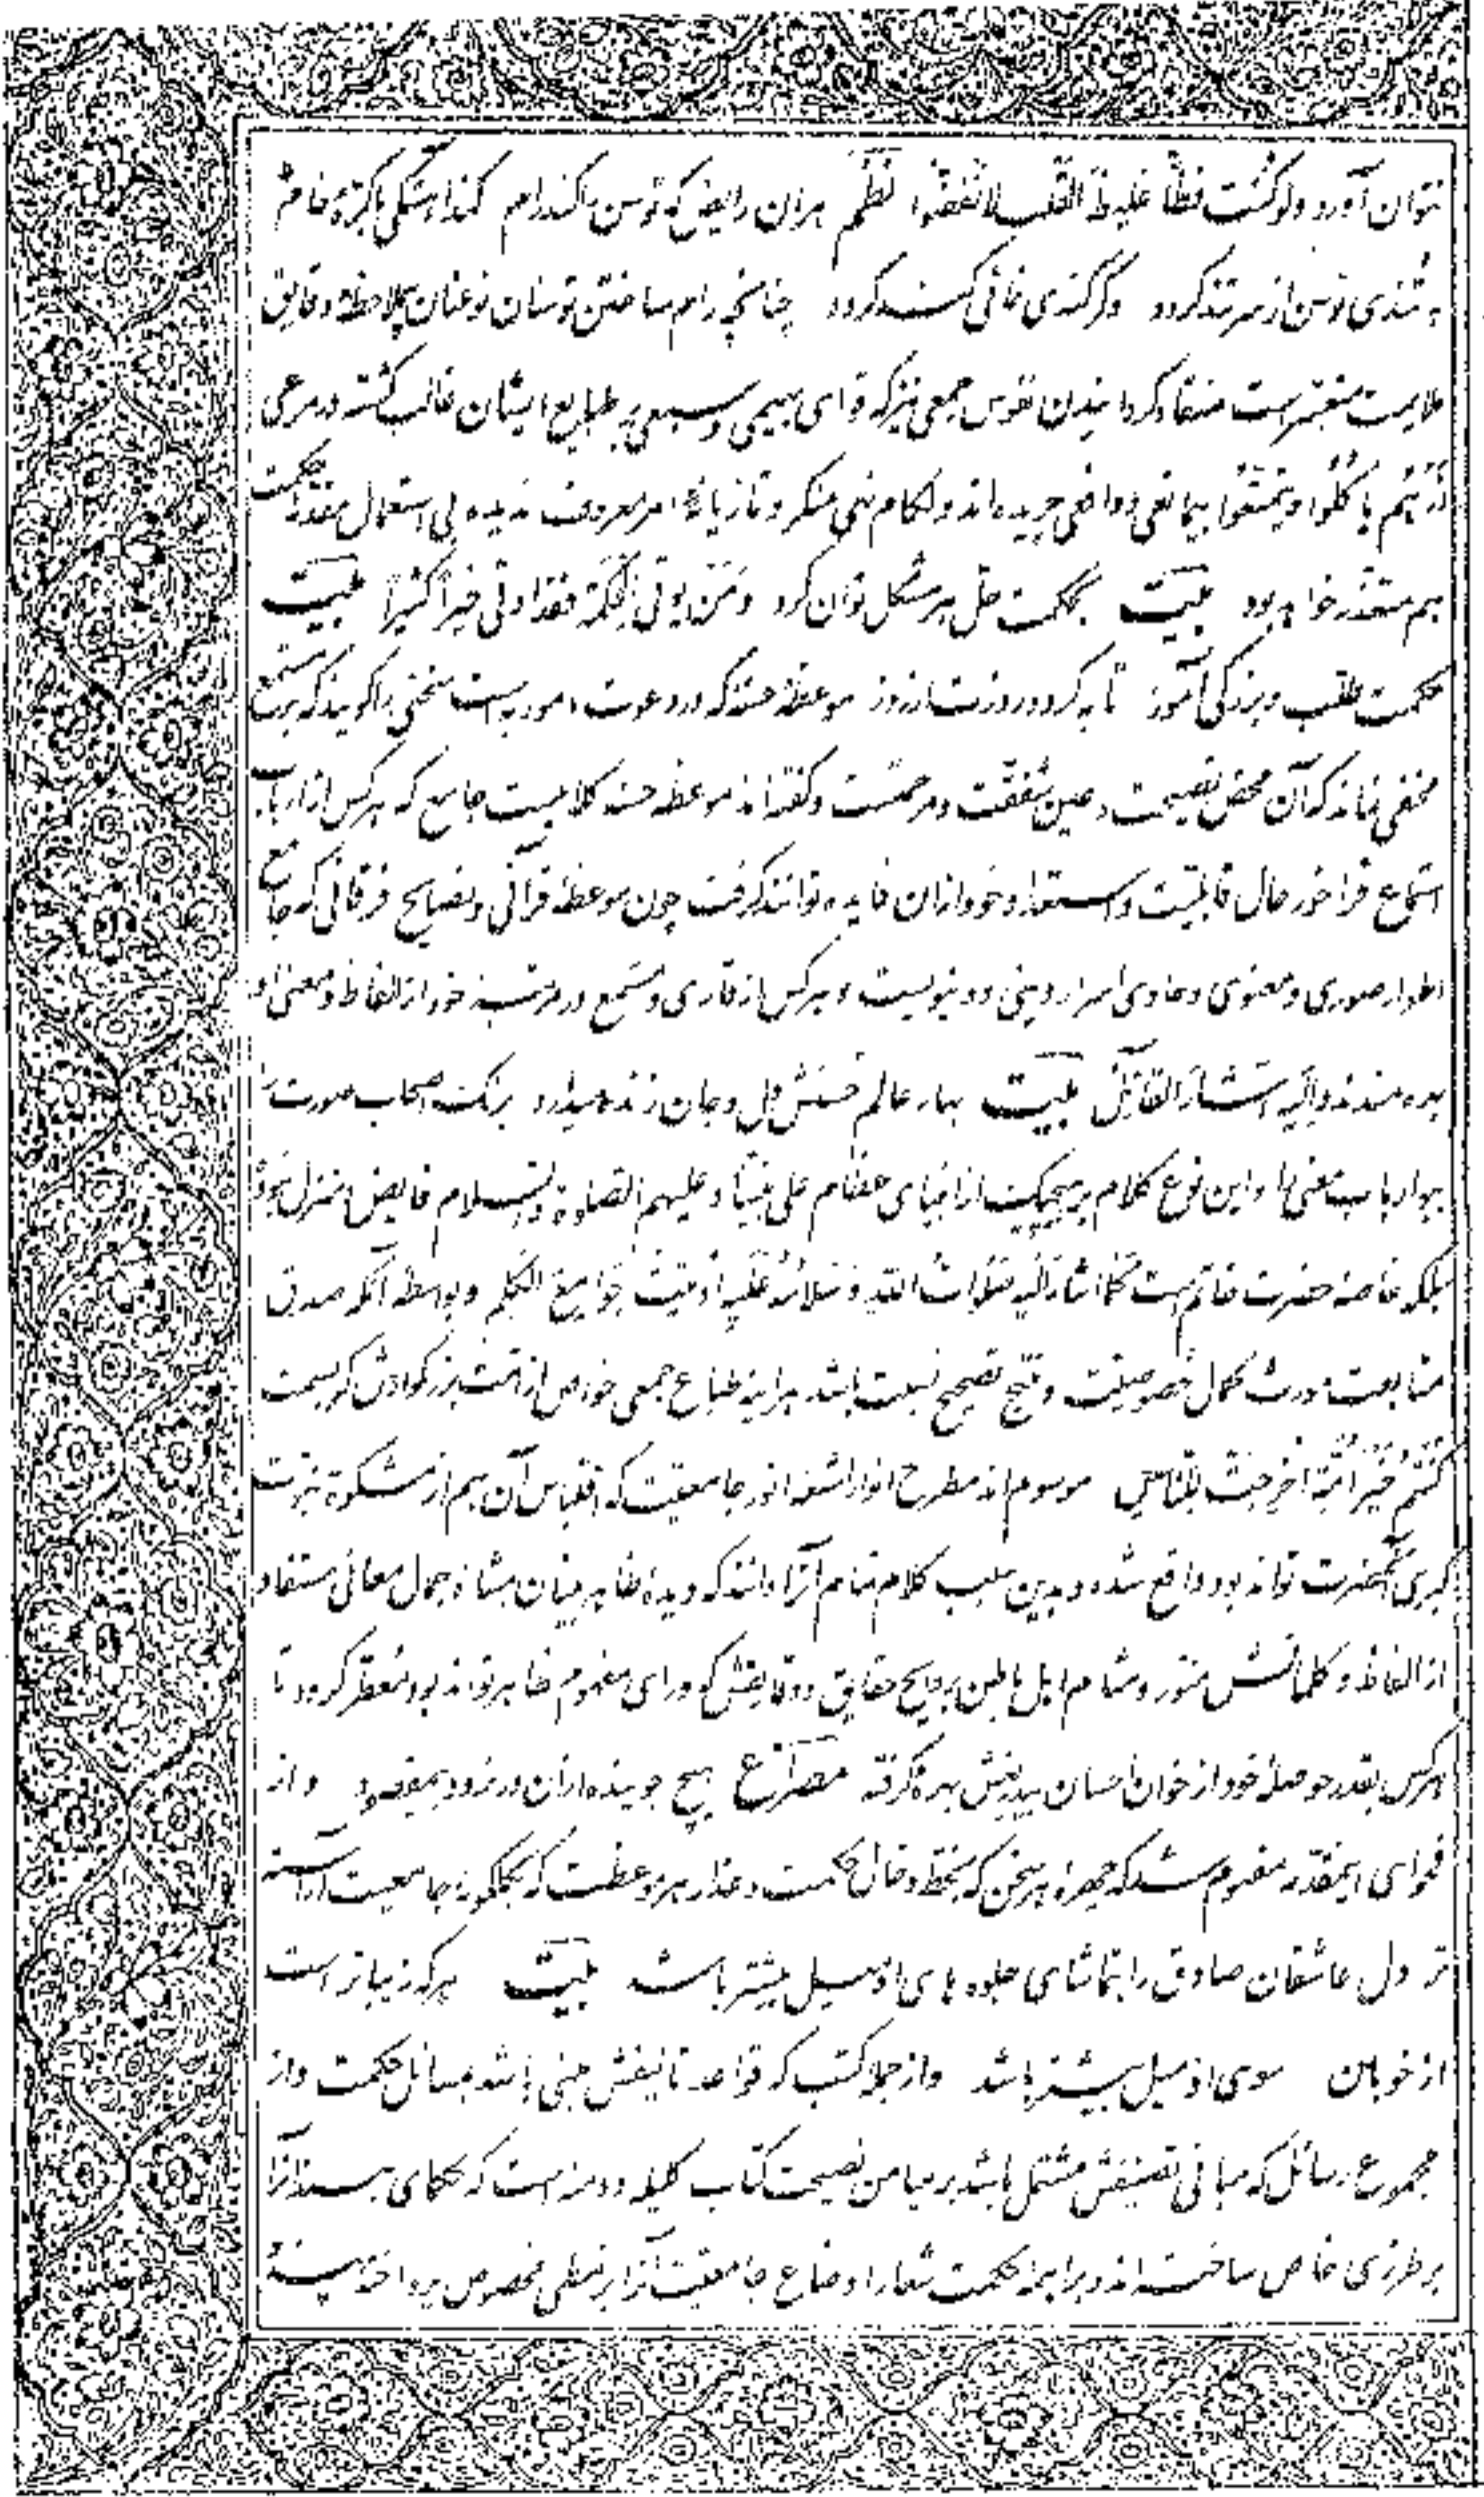 نتوان آورد ولو کنت فظّا غلیظ القلب لانفضّوا نظم بران رایض که توسن را کند رام کند آهستگی با کره خام
به تندی توسن از سر تند کردد وکر کندی نمائی کند کردد چنانچه رام ساختن توسنان نوعنان بملاحظه دقایق
ملایمت معتبر است منقاد کردانیدن نفوس جمعی نیز که قوای بهیمی وسبعی بر طبایع ایشان غالب کشته در مرعی
ذرهم یاکلوا ویتمتعوا بیمانعی ودافعی چریده اند ولکام نهی منکر وتازیانه امر معروف ندیده بی استعمال مقدمات حکمت
هم متعذر خواهد بود بیت بحکمت حل هر مشکل توان کرد ومن یؤتی الحکمة فقد اوتی خیرا کثیرا بیت
حکمت طلب وبزرکی آموز تا به کردد روزت از روز موعظه حسنه که در دعوت مامور به است سخنی را کویند که بر مستمع
مخفی نماند که آن محض نصیحت وعین شفقت ومرحمتست وکفته اند موعظه حسنه کلامیست جامع که هرکس از ارباب
استماع فراخور حال قابلیت واستعداد خود ازان فایده توانند کرفت چون موعظه قرآنی ونصایح فرقانی که جامع
اطوار صوری ومعنوی وحاوی اسرار دینی ودنیویست وهرکس از قاری ومستمع در مرتبه خود از الفاظ ومعنی او
بهره مندند والیه اشار القائل بیت بهار عالم حسنش دل وجان زنده میدارد برنک اصحاب صورت را
ببو ارباب معنی را واین نوع کلام بر هیچیک از انبیای عظام علی نبینا وعلیهم الصلوة والسلام فایض ومنزل نبوده
بلکه خاصه حضرت خاتم است کما اشار الیه صلوات الله وسلامه علیه اوتیت جوامع الکلم وبواسطه آنکه صدق
متابعت مورث کمال خصوصیت ومنتج تصحیح نسبت باشد هراینه طباع جمعی خواص از امت بزرکوارش که بسمت
کنتم خیر امة اخرجت للناس موسوم اند مطرح انوار اشعه انور جامعیت که اقتباس آن هم از مشکوة نبوت
کبری آنحضرت تواند بود واقع شده وبدین سبب کلام تمام آنرا دانند که دیده ظاهر بینان بمشاهده جمال معانی مستفاد
از الفاظ وکلماتش منور ومشام اهل باطن بروایح حقایق ودقایقش که ورای مفهوم ظاهر تواند بود معطر کردد تا
هرکس بقدر حوصله خود از خوان احسان بیدریغش بهره کرفته مصراع هیچ جوینده ازان در نرود بیمقصود واز
فحوای اینمقدمه مفهوم شد که چهره هر سخن که بخط وخال حکمت وعذار هر موعظت که بکلکونه جامعیت آراسته
تر دل عاشقان صادق را بتماشای جلوه های او میل بیشتر باشد بیت هرکه زیباتر است
از خوبان سوی او میل بیشتر باشد واز جمله کتب که قواعد تالیفش مبنی باشد بمسائل حکمت واز
مجموع رسائل که مبانی تصنیفش مشتمل باشد بر میامن نصیحت کتاب کلیله ودمنه است که حکمای هند آنرا
بر طرزی خاص ساخته اند وبراهمه حکمت شعار اوضاع جامعیت آنرا بر نمطی مخصوص پرداخته